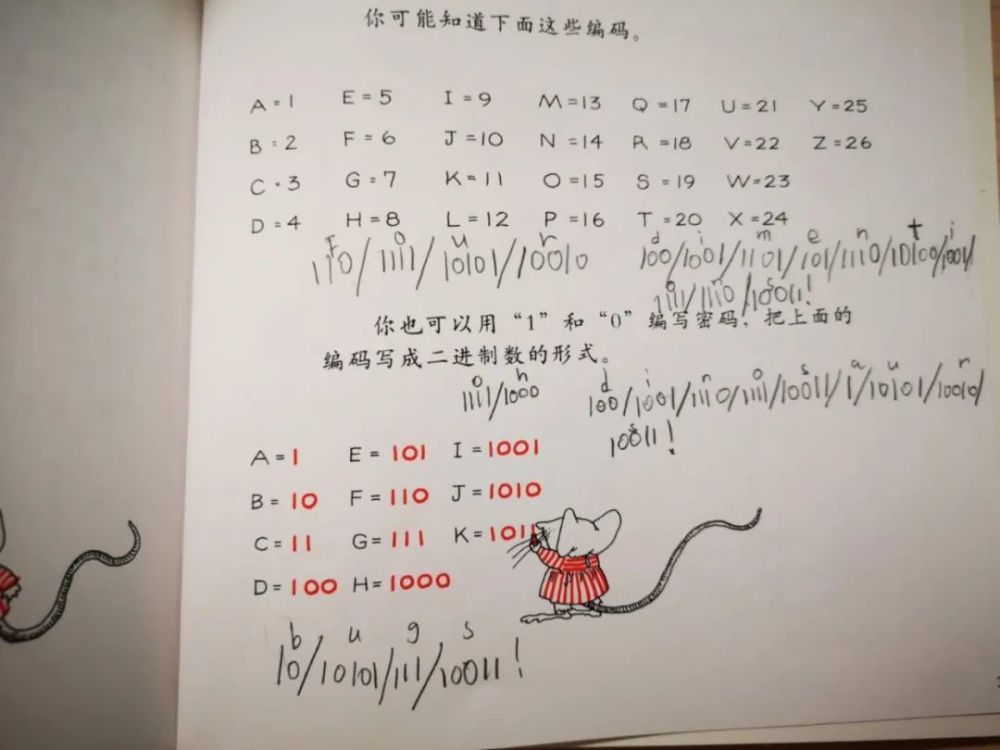 你可能知道下面这些编码。
A=1 E=5 I=9 M=13 Q=17 U=21 Y=25
B=2 F=6 J=10 N=14 R=18 V=22 Z=26
C=3 G=7 K=11 O=15 S=19 W=23
D=4 H=8 L=12 P=16 T=20 X=24
F o u r d i m e n t i
110/1111/10101/10010 100/1001/1101/101/1110/10100/1001/
o n s
1111/1110/10011!
你也可以用“1”和“0”编写密码，把上面的
编码写成二进制数的形式。
o h d i n o s a u r
1111/1000 100/1001/1110/1111/10011/1/10101/10010/
s
10011!
A=1 E=101 I=1001
B=10 F=110 J=1010
C=11 G=111 K=1011
D=100 H=1000
b u g s
10/10101/111/10011!